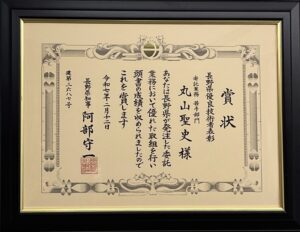 賞状
長野県優良技術者表彰
委託業務 若手部門
丸山聖史様
あなたは長野県が発注した委託
業務において優れた取組を行い
頭書の成績を収められましたので
これを賞します
令和七年二月十二日
長野県知事 阿部守一